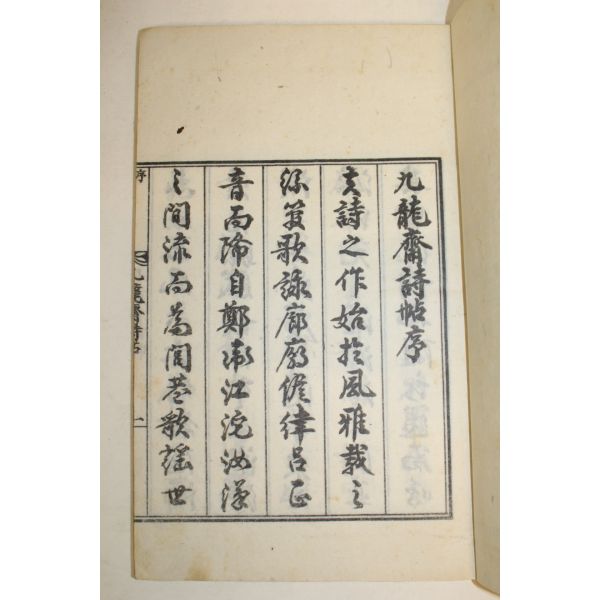 九龍齋詩帖序
夫詩之作始於風雅載之
絃笈歌詠廊廟偕律呂正
音而降自鄭衛江沱汝漢
之間流而為閭巷歌謠世
序 九龍齋詩帖 一